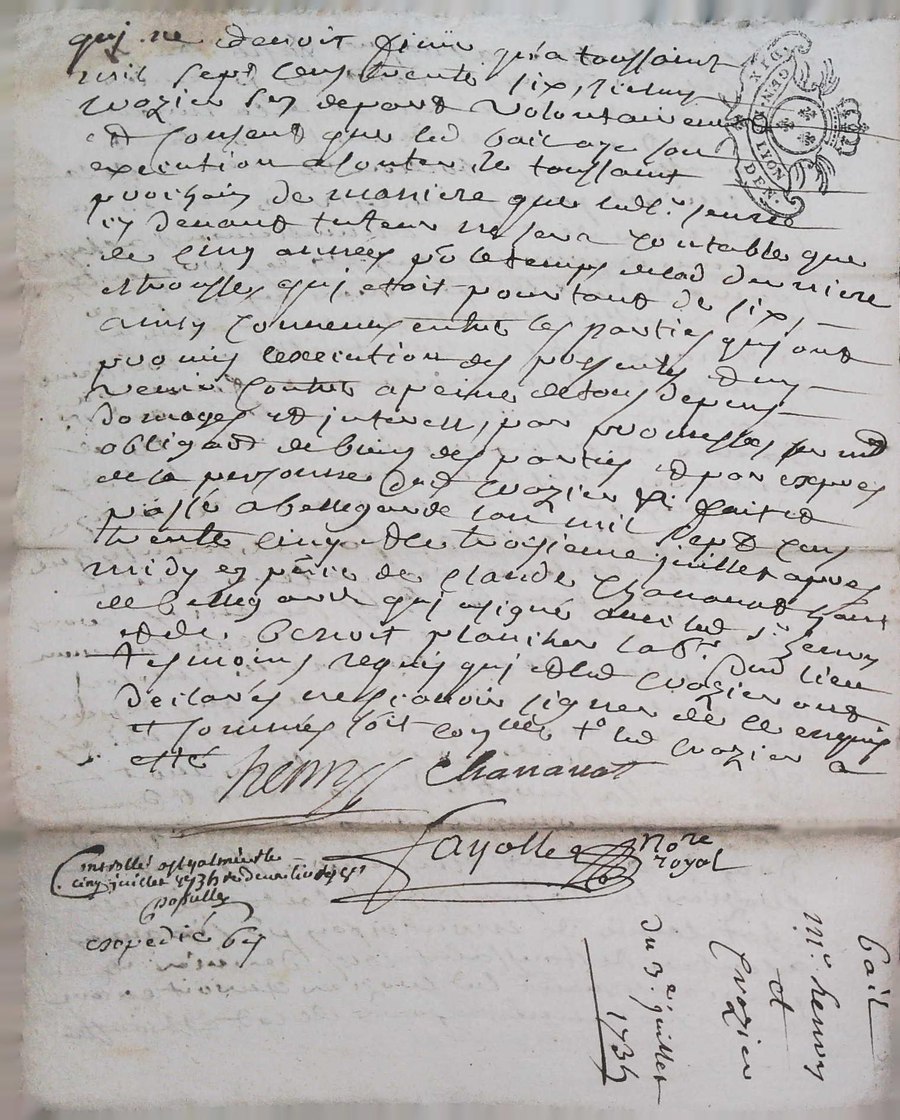 qui ne devoit finir qu'a toussaint
mil sept cens trente six, ledit
Crozier s'en depart volontairement
et consent que led bail aye son
execution a conter de toussaint
prochain de maniere que led sr. henry
cy devant tuteur ne sera contable que
de cinq années pr le temps de lad derniere
qui etoit pourtant de six,
ainsy convenu entre les parties qui ont
promis l'execution des presentes
venir contre a peine de tous depens
domages et interest, par promesses
obligaõn de biens des parties et par expres
de la personne dud Crozier fait et
passé a bellegarde l'an mil sept cens
trente cinq et le troisieme juillet apres
midy en pñce de claude Chanavat
de bellegarde qui a signé avec led sr. henry
et de benoit plancher labr. dud lieu
tesmoins requis qui et led Crozier ont
declarés ne sçavoir signer de ce enquis
et sommés soit led Crozier a
etté
henry Chanavat
fayolle Nore
royal
cinq juillet 1735
expedié
GEN. LYON DEN.
bail
Mr. henry
et
Crozier
du 3e. juillet
1735